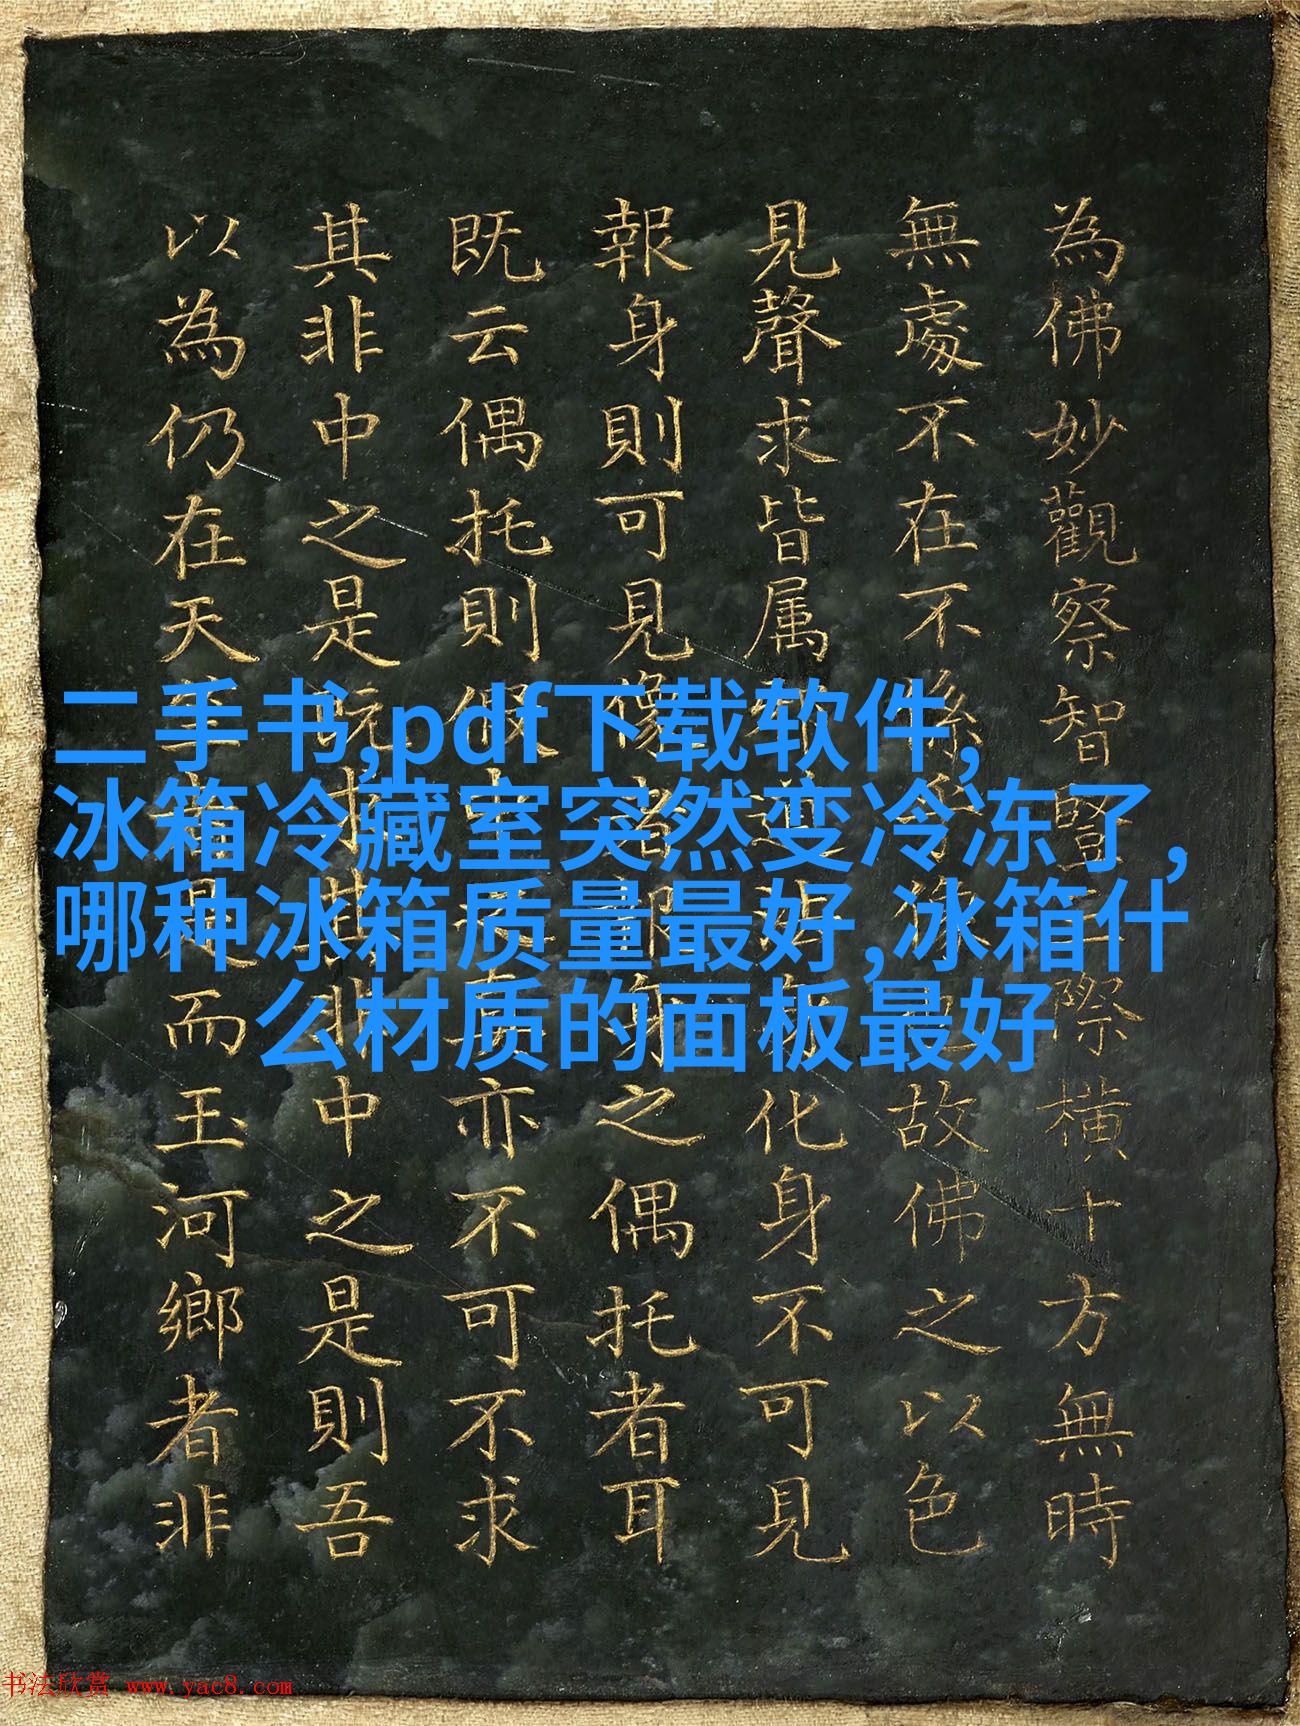 為佛妙觀察智際橫十方無時
無處不在不故佛之以色
見聲求皆属化身不可見
報身則可見之偶托者耳
既云偶托則假亦不可不求
其非中之是中之是則吾
以為仍在天而玉河鄉者非
二手书,pdf下载软件,
冰箱冷藏室突然变冷冻了,
哪种冰箱质量最好,冰箱什
么材质的面板最好
书法欣赏 www.yac8.com